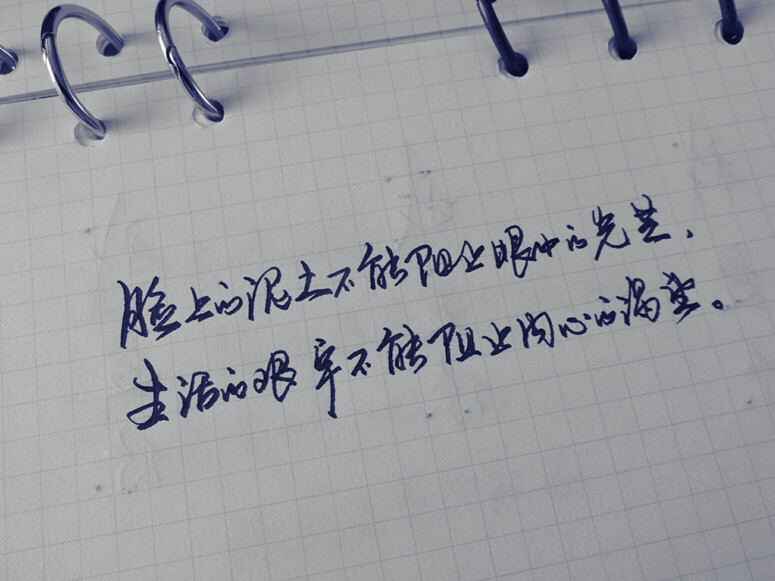 脸上的泥土不能阻止眼中的光芒，
生活的艰辛不能阻止内心的渴望。